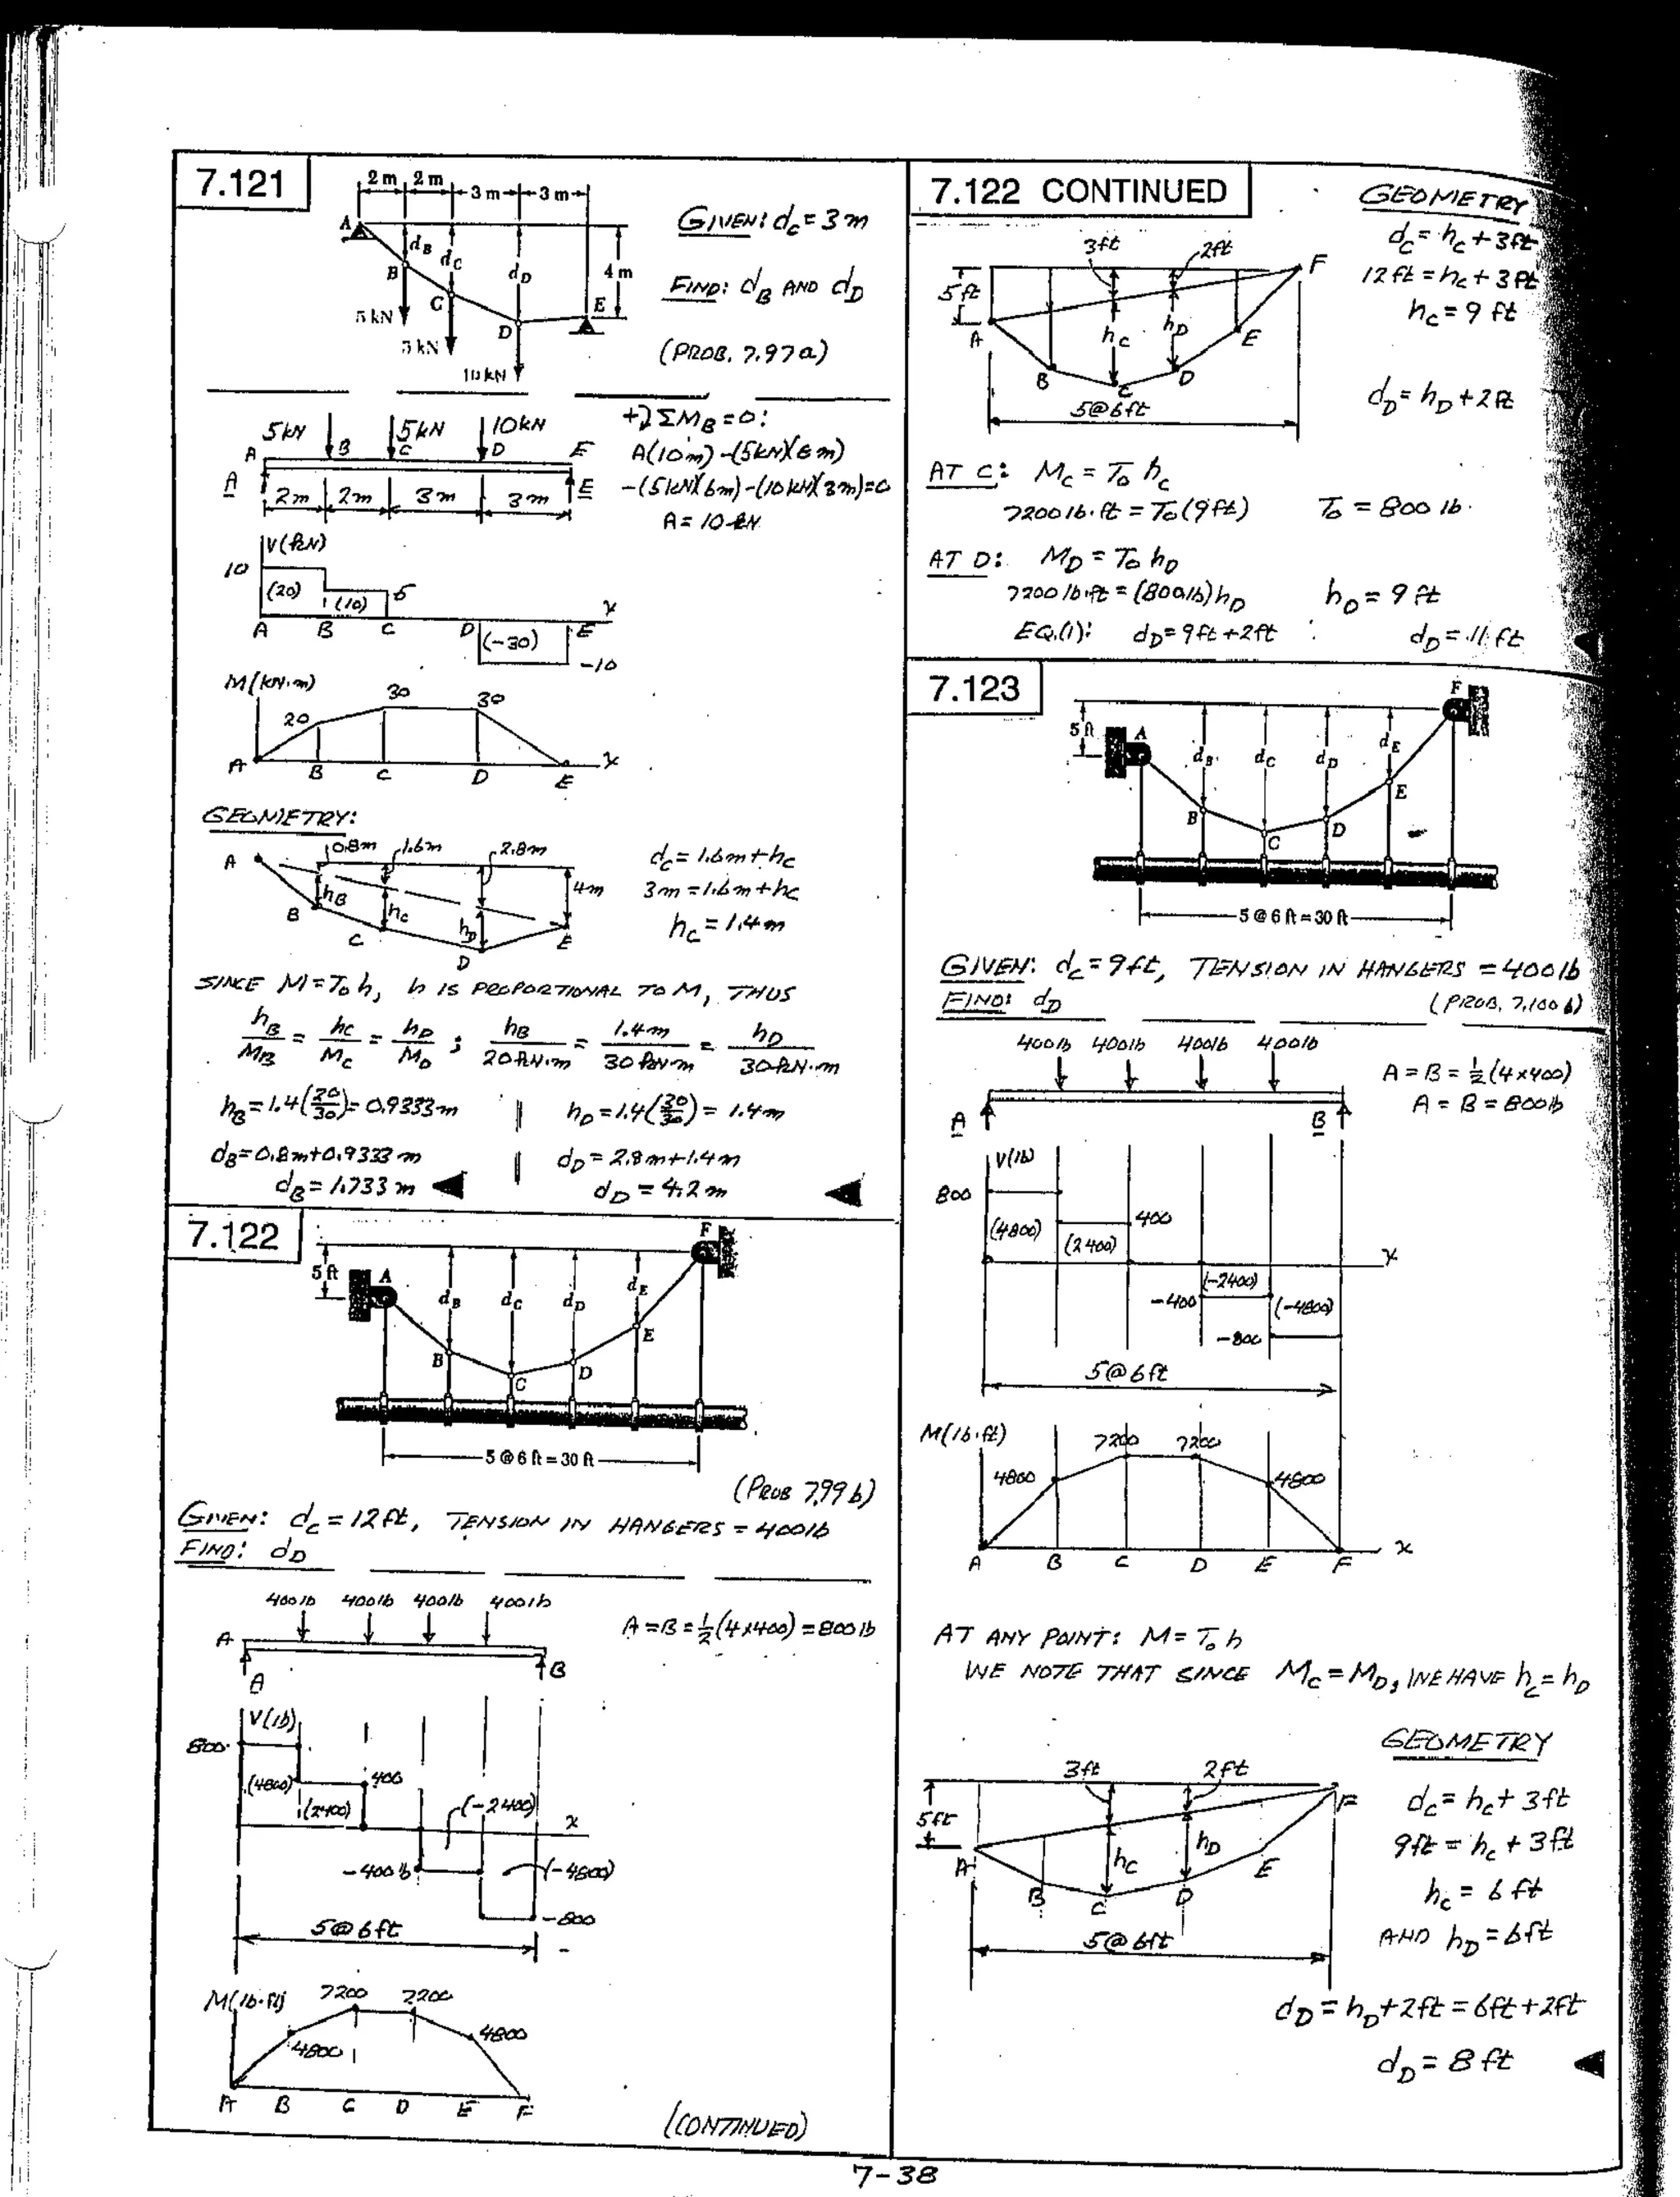 7.121
2 m 2 m 3 m 3 m
A
dB dC dD
4 m
B
C
D
E
5 kN
5 kN
10 kN
GIVEN: dC = 3 m
FIND: dB AND dD
(PROB. 7.97a)
5 kN 5 kN 10 kN
A B C D E
A 2m 2m 3m 3m E
+⤸ΣMB = 0:
A(10m) - (5kN)(8m)
-(5kN)(6m) - (10kN)(3m) = 0
A = 10 kN
V(kN)
10
(20) (10) 5
A B C D (-30) E x
-10
M(kN·m)
20 30 30
A B C D E x
GEOMETRY:
A 0.8m 1.6m 2.8m
hB hC hD 4m
B C D E
dC = 1.6m + hC
3m = 1.6m + hC
hC = 1.4m
SINCE M = T₀h, h IS PROPORTIONAL TO M, THUS
hB/MB = hC/MC = hD/MD ; hB/20kN·m = 1.4m/30kN·m = hD/30kN·m
hB = 1.4(20/30) = 0.9333m || hD = 1.4(30/30) = 1.4m
dB = 0.8m + 0.9333m || dD = 2.8m + 1.4m
dB = 1.733 m ◄ dD = 4.2 m ◄
7.122
F
5 ft A
dB dC dD dE
B C D E
5 @ 6 ft = 30 ft
(PROB 7.99b)
GIVEN: dC = 12 ft, TENSION IN HANGERS = 400 lb
FIND: dD
400 lb 400 lb 400 lb 400 lb
A = B = ½(4×400) = 800 lb
A
A B
V(lb)
800
(4800) (2400) 400 (-2400)
x
-400 lb (-4800)
-800
5 @ 6 ft
M(lb·ft) 7200 7200
4800 4800
A B C D E F
(CONTINUED)
7.122 CONTINUED
3ft 2ft F
5 ft
A hC hD E
B C D
5 @ 6 ft
GEOMETRY
dC = hC + 3ft
12 ft = hC + 3 ft
hC = 9 ft
dD = hD + 2 ft
AT C: MC = T₀ hC
7200 lb·ft = T₀(9 ft) T₀ = 800 lb.
AT D: MD = T₀ hD
7200 lb·ft = (800 lb) hD hD = 9 ft
EQ.(1): dD = 9ft + 2ft dD = 11 ft ◄
7.123
F
5 ft A
dB dC dD dE
B C D E
5 @ 6 ft = 30 ft
GIVEN: dC = 9 ft, TENSION IN HANGERS = 400 lb
FIND: dD (PROB. 7.100 b)
400 lb 400 lb 400 lb 400 lb
A = B = ½(4×400)
A = B = 800 lb
A B
V(lb)
800
(4800) (2400) 400
x
-400 (-2400) (-4800)
-800
5 @ 6 ft
M(lb·ft)
4800 7200 7200 4800
A B C D E F x
AT ANY POINT: M = T₀ h
WE NOTE THAT SINCE MC = MD, WE HAVE hC = hD
GEOMETRY
3ft 2ft
5ft F
A hC hD E
B C D
5 @ 6ft
dC = hC + 3ft
9ft = hC + 3ft
hC = 6 ft
AND hD = 6ft
dD = hD + 2ft = 6ft + 2ft
dD = 8 ft ◄
7-38